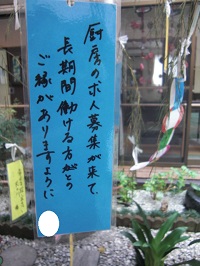 厨房の求人募集が来て、
長期間働ける方がとの
ご縁がありますように